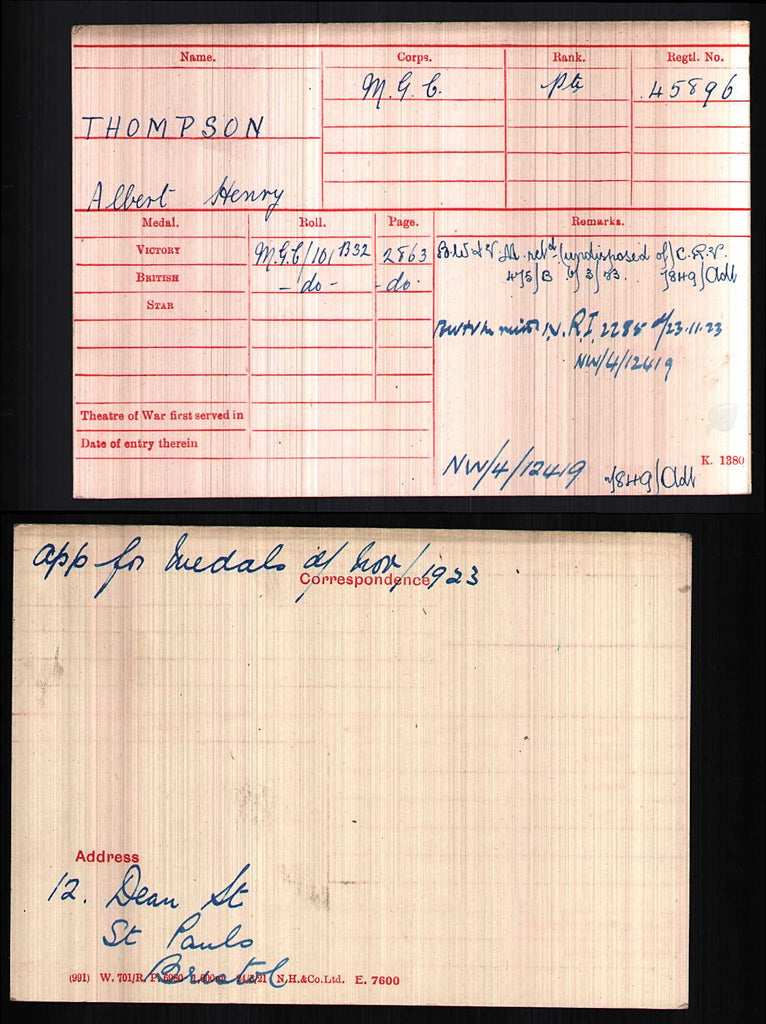 Name. Corps. Rank. Regtl. No.
M.G.C. Pte 45896
THOMPSON
Albert Henry
Medal. Roll. Page. Remarks.
VICTORY M.G.C/101 B32 2863 B.W & V.M. retd (undisposed of) C.R.V.
BRITISH - do - - do - 475/B of 3/ /23. 7849/Adt
STAR
BW & V 1N. R.I. 2285 d/23.11.23
NW/4/12419
Theatre of War first served in
Date of entry therein
K. 1380
NW/4/12419 7849/Adt
app for Medals d/ Nov/1923
Correspondence
Address
12. Dean St
St Pauls
Bristol
(991) W. 701/R.P. 5080 24/5/21 N.H.&Co.Ltd. E. 7600